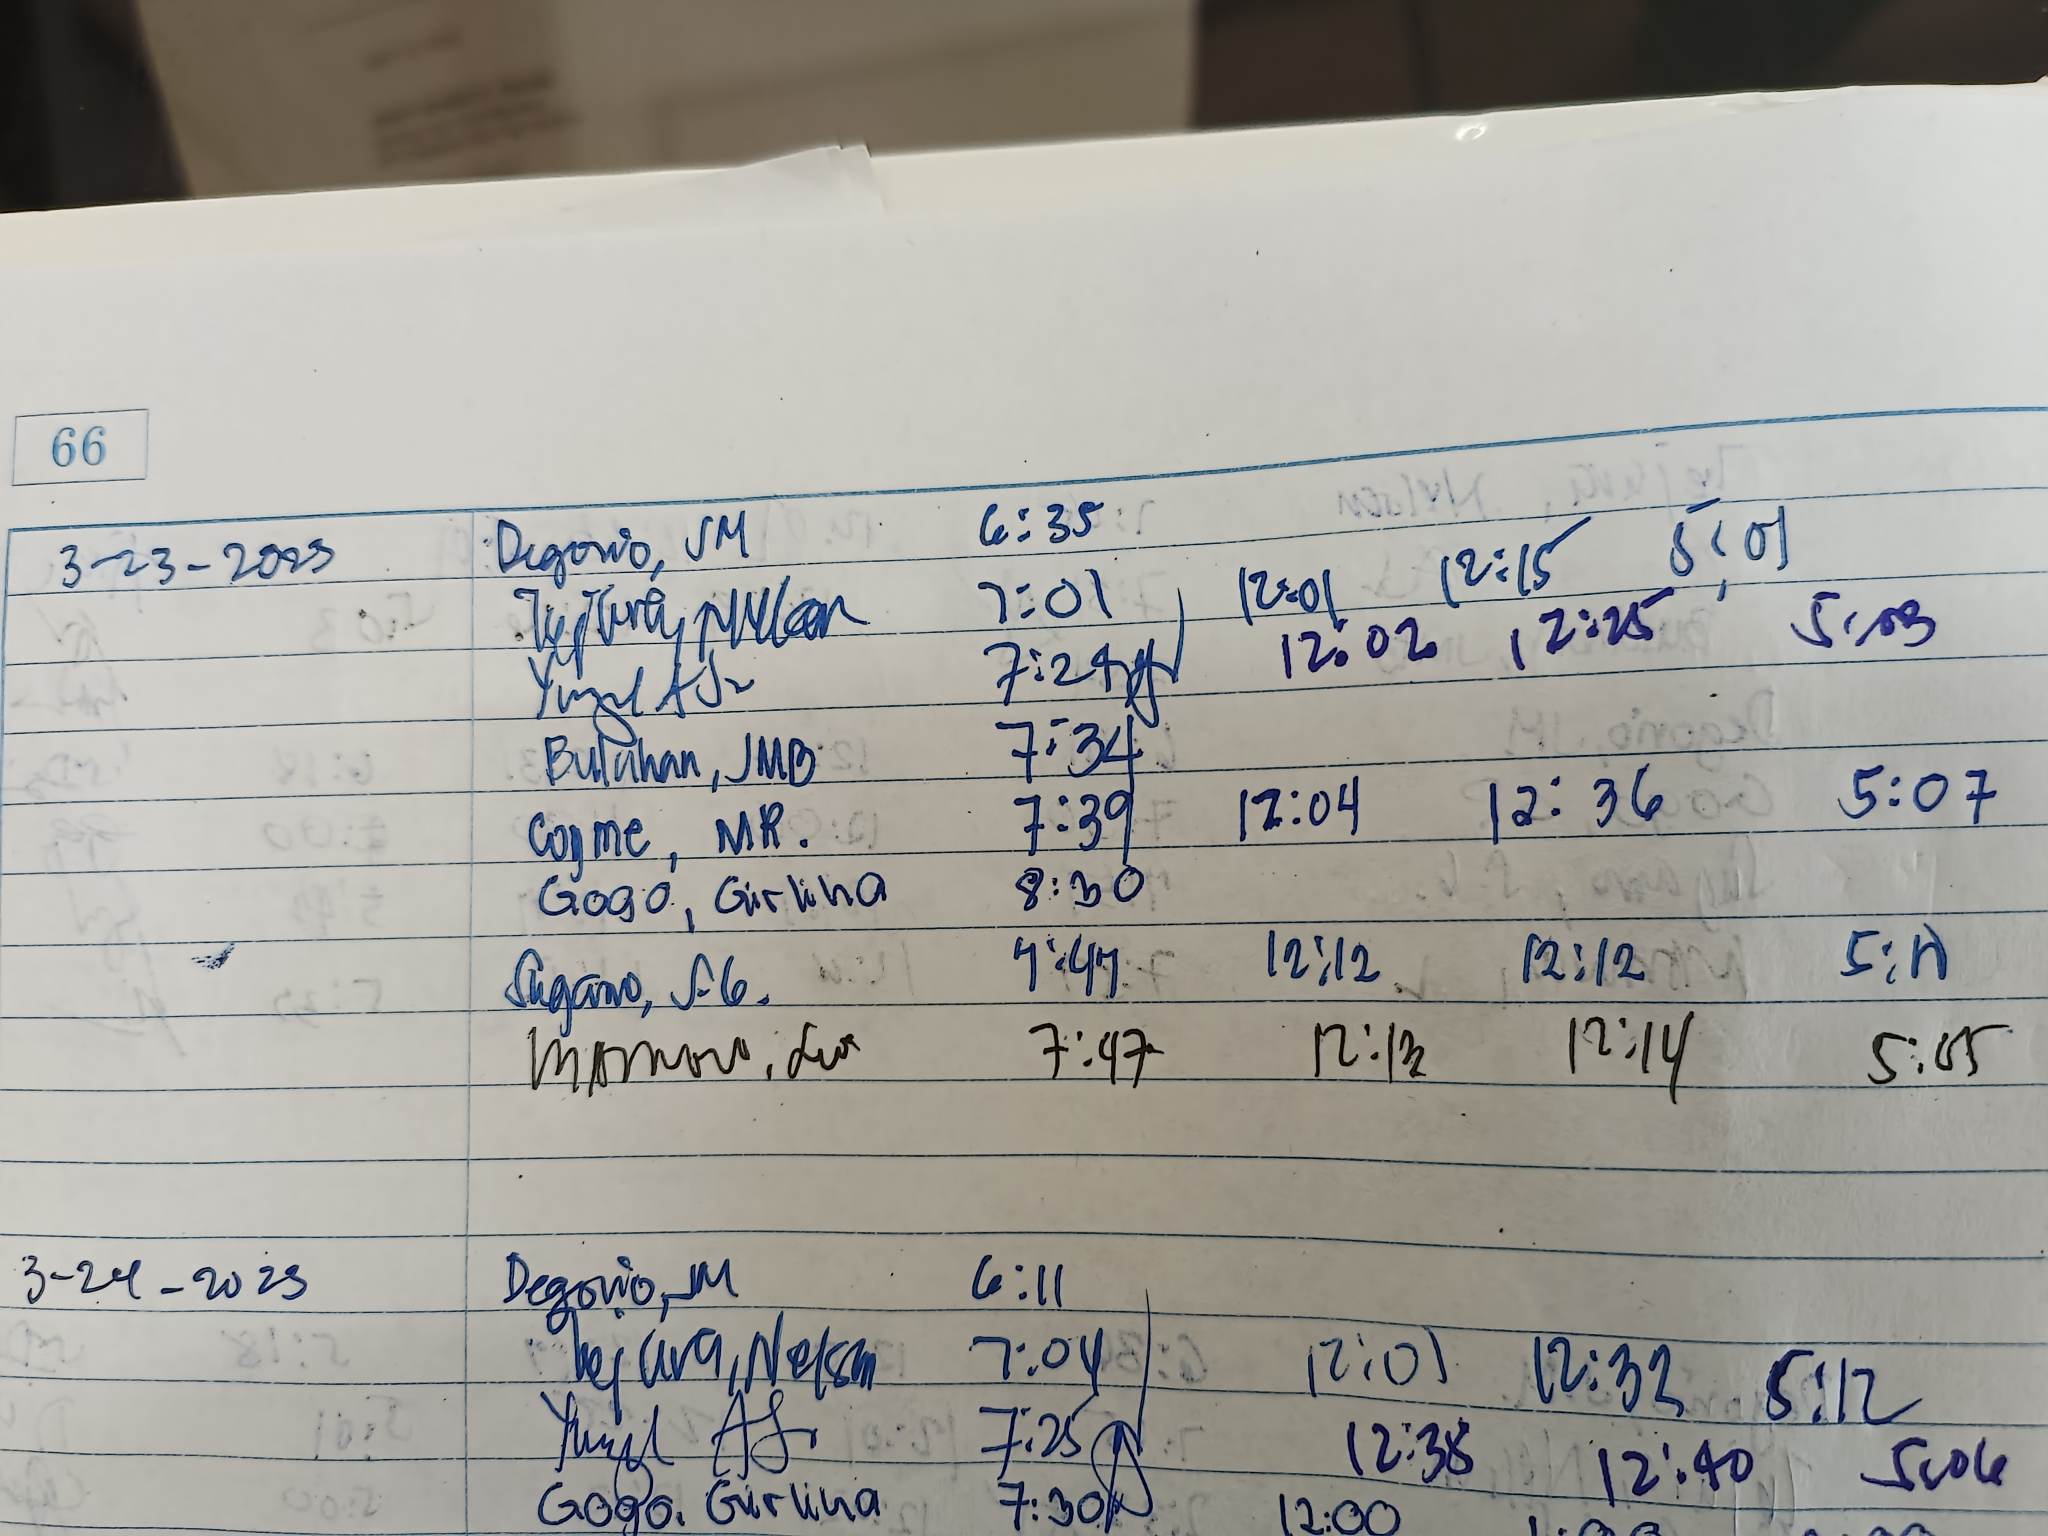 66
3-23-2023 Degorio, JM 6:35
Tejura, Nelson 7:01 12:01 12:15 5:01
7:24 12:02 12:25 5:03
Butuhan, JMB 7:34
Cogme, MR. 7:39 12:04 12:36 5:07
Gogo, Girlina 8:30
Sugano, S.G. 7:47 12:12 12:12 5:11
7:47 12:13 12:14 5:05
3-24-2023 Degorio, JM 6:11
Tejura, Nelson 7:04 12:01 12:32 5:12
7:25 12:38 12:40 5:06
Gogo. Girlina 7:30 12:00